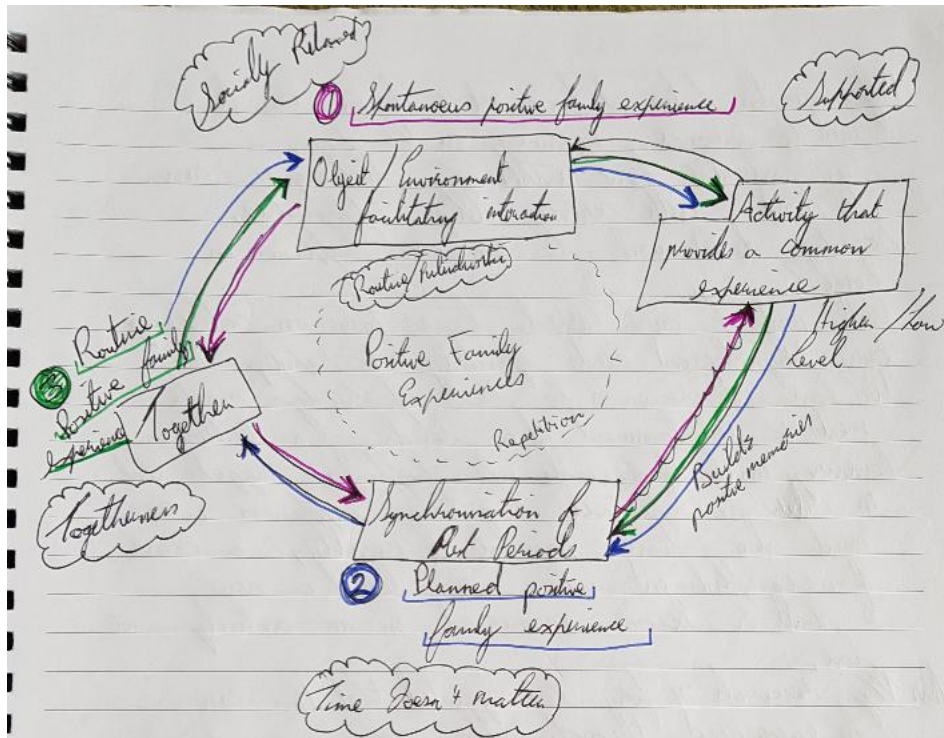 Socially Relaxed
Supported
① Spontaneous positive family experience
Object / Environment
facilitating interaction
Activity that
provides a common
experience
Higher / Low
Level
Routine
Positive Family
Experiences
Repetition
③ Routine
Positive family
experience
Together
Togetherness
Builds
positive memories
Synchronisation of
Rest Periods
② Planned positive
family experience
Time Doesn't matter